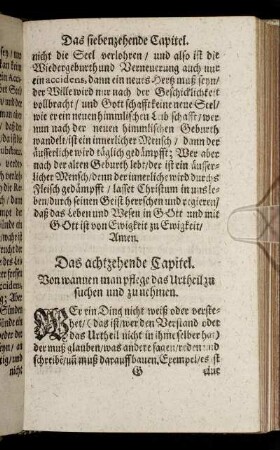 Das siebenzehende Capitel.
nicht die Seel verlohren / und also ist die
Wiedergeburth und Verneuerung auch nur
ein accidens, dann ein neues Hertz muß seyn/
der Wille wird nur nach der Geschickligkeit
vollbracht / und Gott schafft keine neue Seel/
wie er ein neuen himmlischen Lib schafft/ wer
nun nach der neuen himmlischen Geburth
wandelt/ ist ein innerlicher Mensch / dann der
äusserliche wird täglich gedämpfft; Wer aber
nach der alten Geburth lebt/ der ist ein äusser-
licher Mensch/ denn der innerliche wird durchs
Fleisch gedämpfft / lasset Christum in uns le-
ben/ durch seinen Geist herrschen und regieren/
daß das Leben und Wesen in GOtt und mit
GOtt ist von Ewigkeit zu Ewigkeit/
Amen.
Das achtzehende Capitel.
Von wannen man pflege das Urtheil zu
suchen und zu nehmen.
WEr ein Ding nicht weiß oder verste-
het/ (das ist/ wer den Verstand oder
das Urtheil nicht in ihme selber hat)
der muß glauben/ was andere sagen/ reden und
schreibẽ/ uñ muß darauff bauen. Exempel/ es ist
G eine
nicht